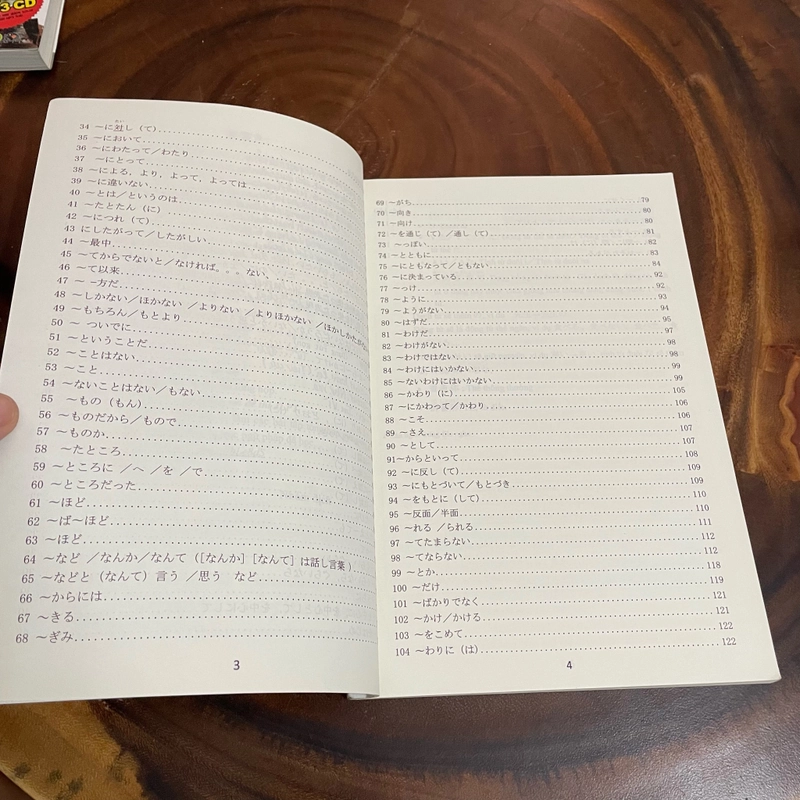 3・CD
34 ～に対し（て）
35 ～において
36 ～にわたって／わたり
37 ～にとって
38 ～による，より，よって，よっては
39 ～に違いない
40 ～とは／というのは
41 ～たとたん（に）
42 ～につれ（て）
43 にしたがって／したがしい
44 ～最中
45 ～てからでないと／なければ。。。ない
46 ～て以来
47 ～ –方だ
48 ～しかない／ほかない ／よりない ／よりほかない ／ほかしかたがない
49 ～もちろん／もとより
50 ～ ついでに
51 ～ということだ
52 ～ことはない
53 ～こと
54 ～ないことはない／もない
55 ～もの（もん）
56 ～ものだから／もので
57 ～ものか
58 ～たところ
59 ～ところに ／へ ／を ／で
60 ～ところだった
61 ～ほど
62 ～ば～ほど
63 ～ほど
64 ～など ／なんか／なんて（[なんか]［なんて］は話し言葉 ）
65 ～などと（なんて）言う ／思う など
66 ～からには
67 ～きる
68 ～ぎみ
3
69 ～がち 79
70 ～向き 80
71 ～向け 80
72 ～を通じ（て）／通し（て） 81
73 ～っぽい 82
74 ～とともに 83
75 ～にともなって／ともない 84
76 ～に決まっている 92
77 ～っけ 92
78 ～ように 93
79 ～ようがない 94
80 ～はずだ 95
81 ～わけだ 97
82 ～わけがない 98
83 ～わけではない 98
84 ～わけにはいかない 99
85 ～ないわけにはいかない 99
86 ～かわり（に） 105
87 ～にかわって／かわり 106
88 ～こそ 106
89 ～さえ 107
90 ～として 107
91～からといって 108
92 ～に反し（て） 109
93 ～にもとづいて／もとづき 109
94 ～をもとに（して） 110
95 ～反面／半面 110
96 ～れる ／られる 111
97 ～てたまらない 112
98 ～てならない 112
99 ～とか 118
100 ～だけ 119
101 ～ばかりでなく 121
102 ～かけ／かける 121
103 ～をこめて 122
104 ～わりに（は） 122
4